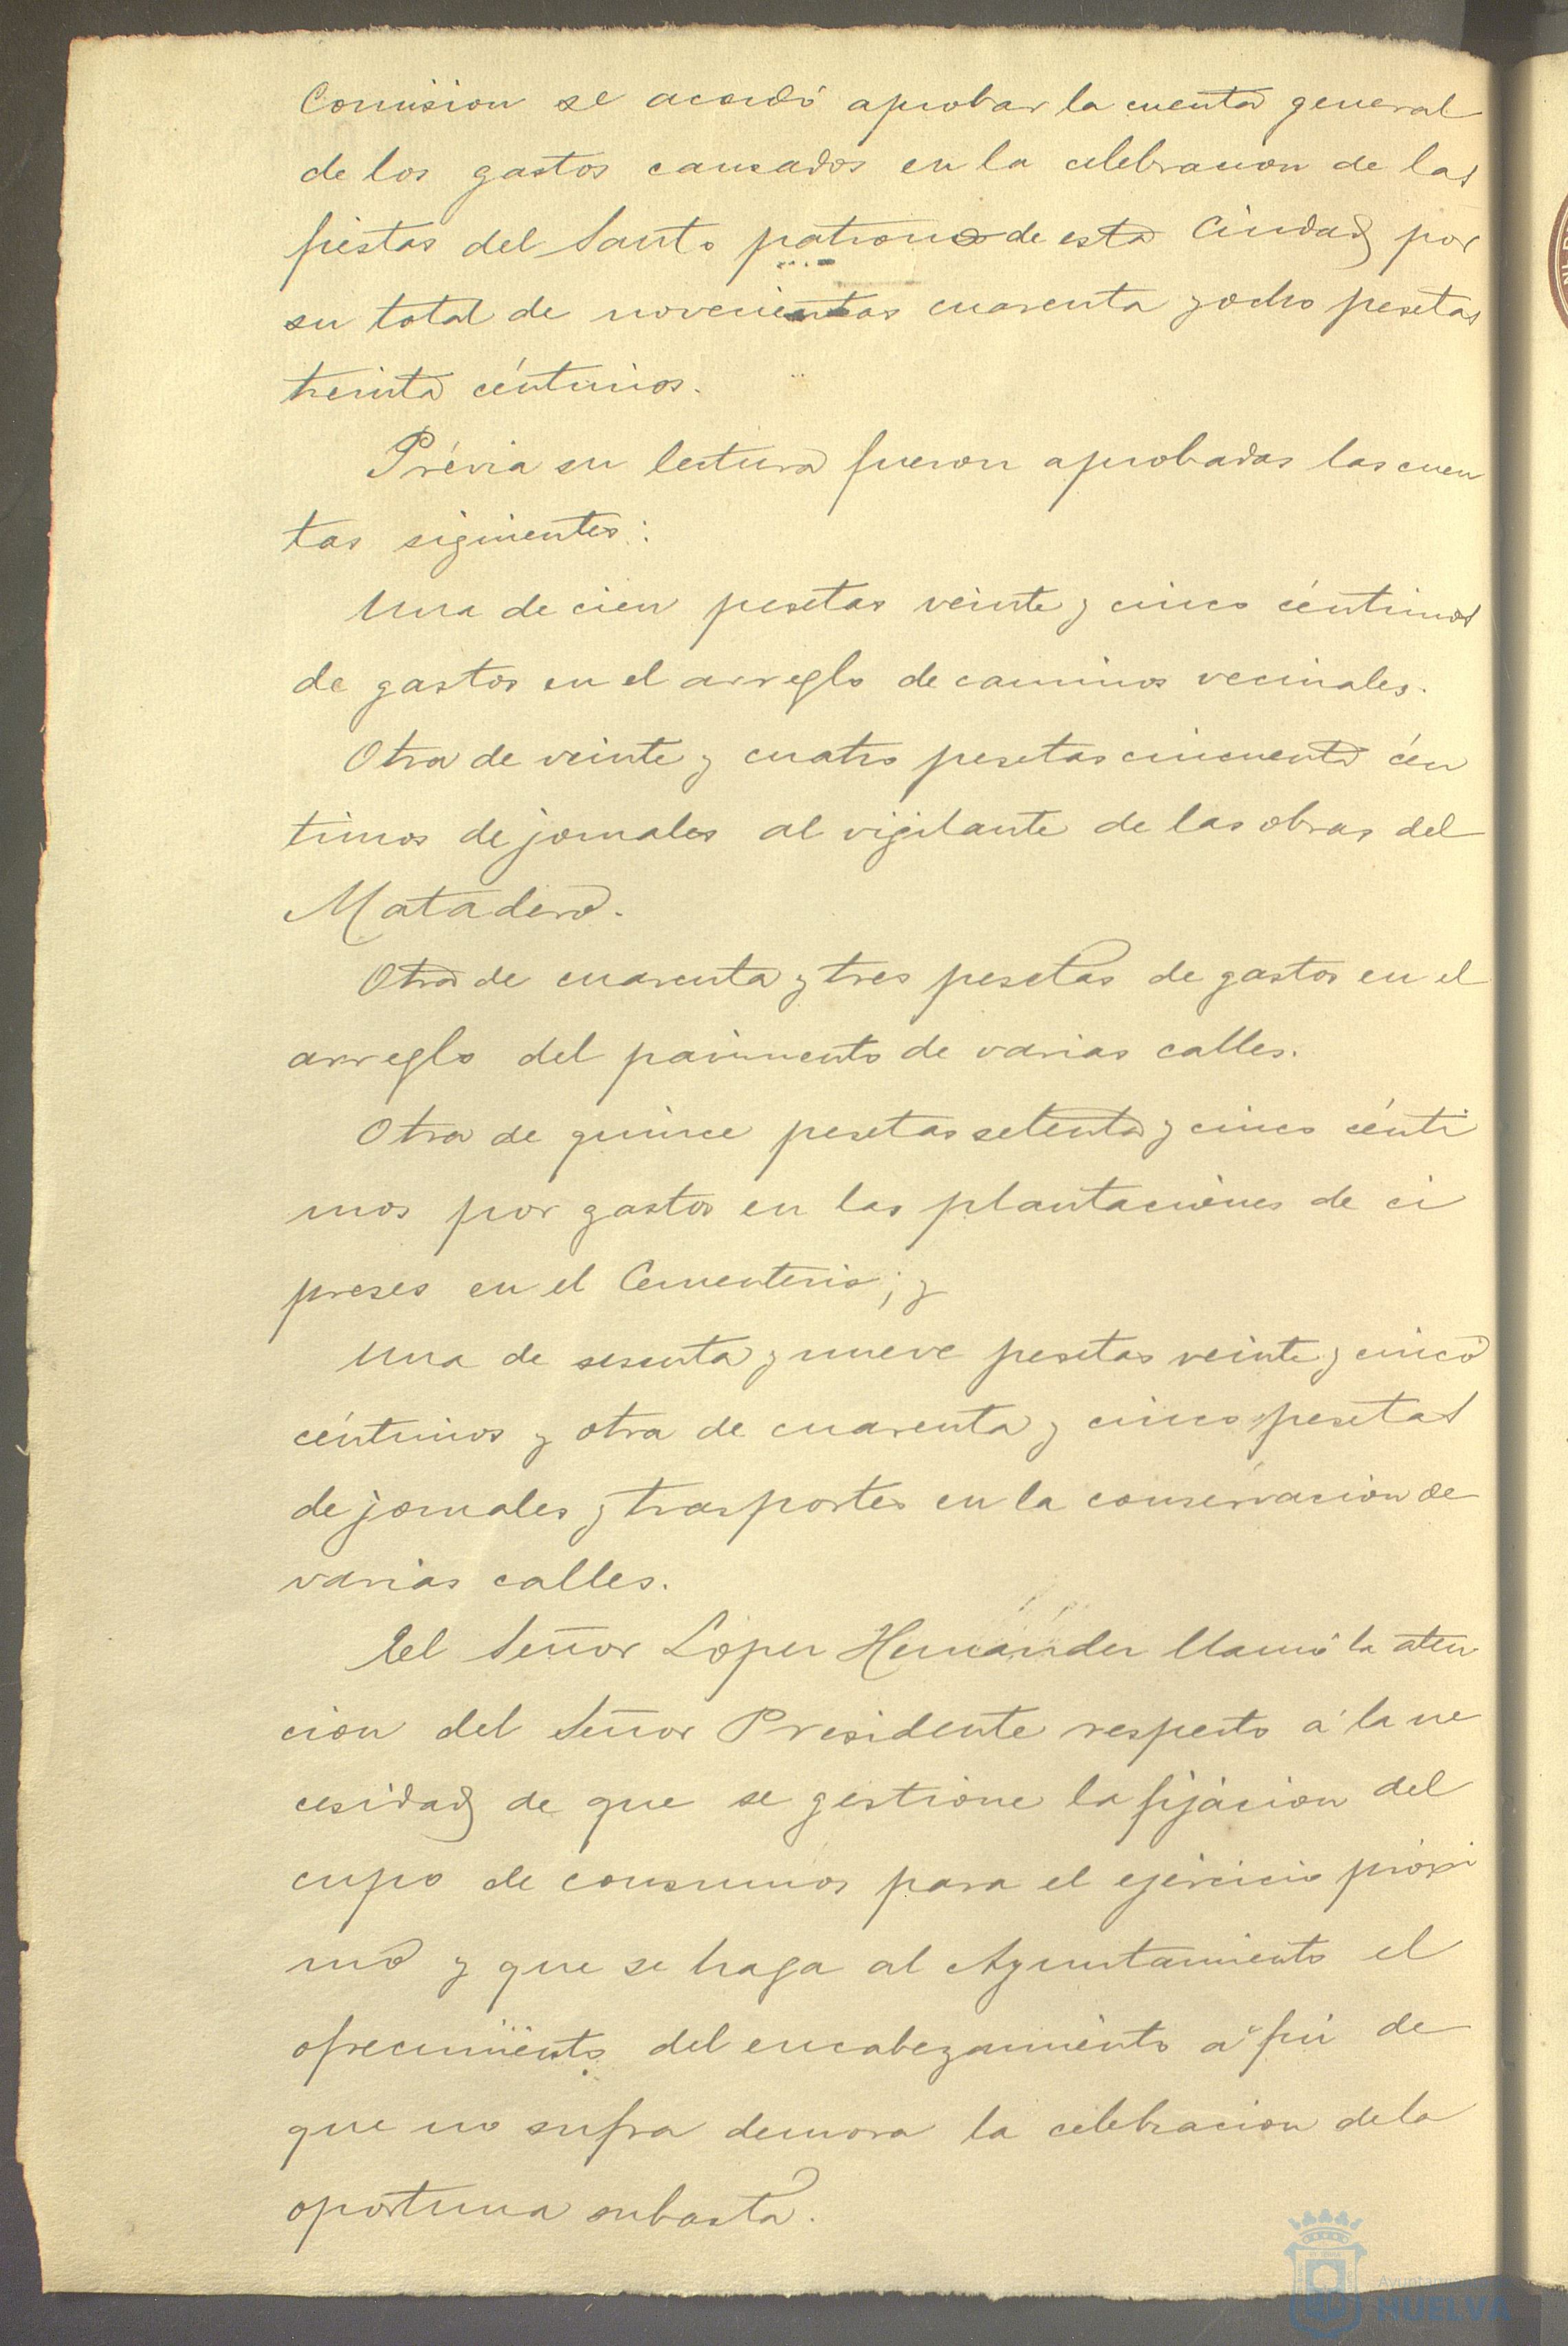 Comision se acordó aprobar la cuenta general
de los gastos causados en la celebracion de las
fiestas del Santo patrono de esta Ciudad por
su total de novecientas cuarenta y ocho pesetas
treinta céntimos.
Prévia su lectura fueron aprobadas las cuen
tas siguientes:
Una de cien pesetas veinte y cinco céntimos
de gastos en el arreglo de caminos vecinales.
Otra de veinte y cuatro pesetas cincuenta cén
timos de jornales al vigilante de las obras del
Matadero.
Otra de cuarenta y tres pesetas de gastos en el
arreglo del pavimento de varias calles.
Otra de quince pesetas setenta y cinco cénti
mos por gastos en las plantaciones de ci
preses en el Cementerio; y
Una de sesenta y nueve pesetas veinte y cinco
céntimos y otra de cuarenta y cinco pesetas
de jornales y trasportes en la conservacion de
varias calles.
El Señor Lopez Hernández llamó la aten
cion del Señor Presidente respecto á la ne
cesidad de que se gestione la fijacion del
cupo de consumos para el ejercicio próxi
mo y que se haga al Ayuntamiento el
ofrecimiento del encabezamiento á fin de
que no sufra demora la celebracion de la
oportuna subasta.
HUELVA